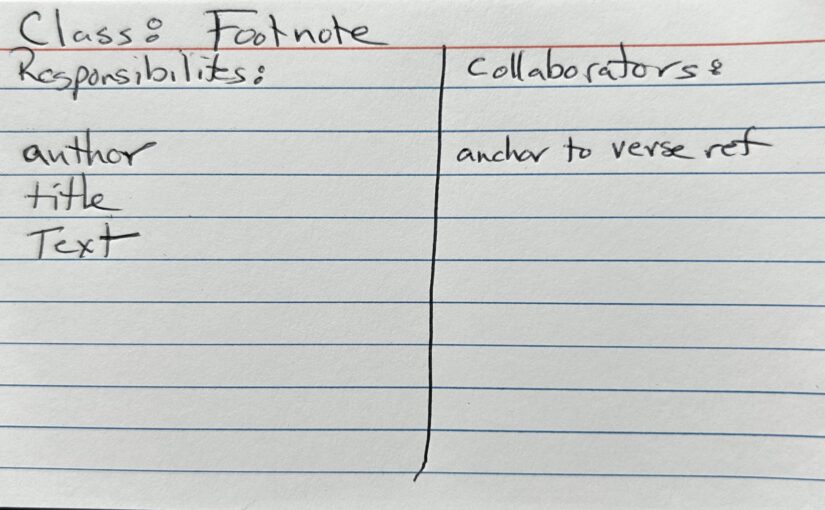 Class: Footnote
Responsibilits:
author
title
Text
Collaborators:
anchor to verse ref